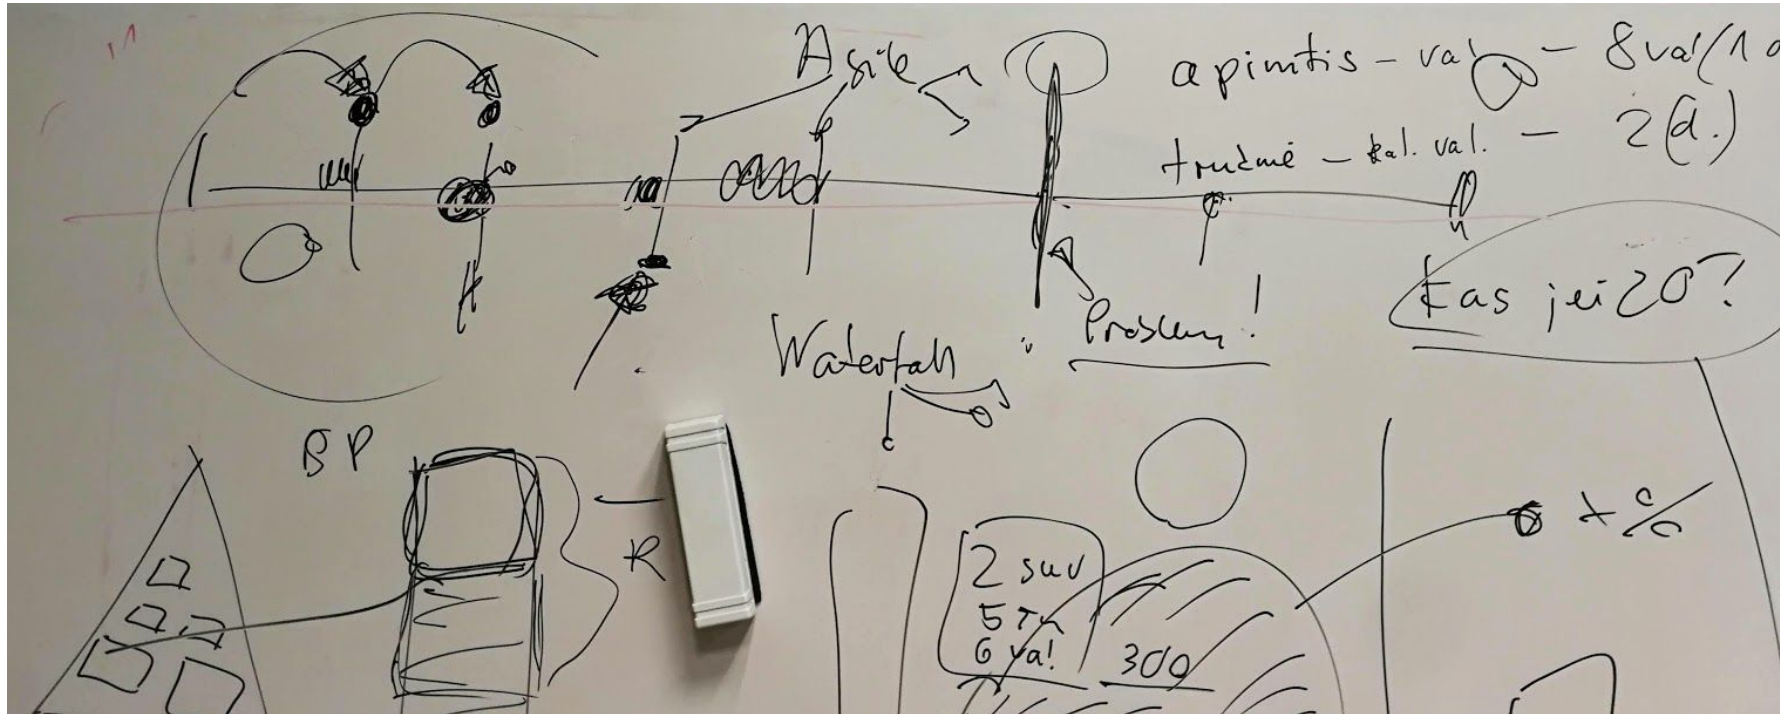 Agile
apimtis - val - 8val/1d
trukmė - kal. val. - 2(d.)
Kas jei 20?
Problem!
Waterfall
BP
R
2 sav
5 Tn
6 val
300
+ c/c